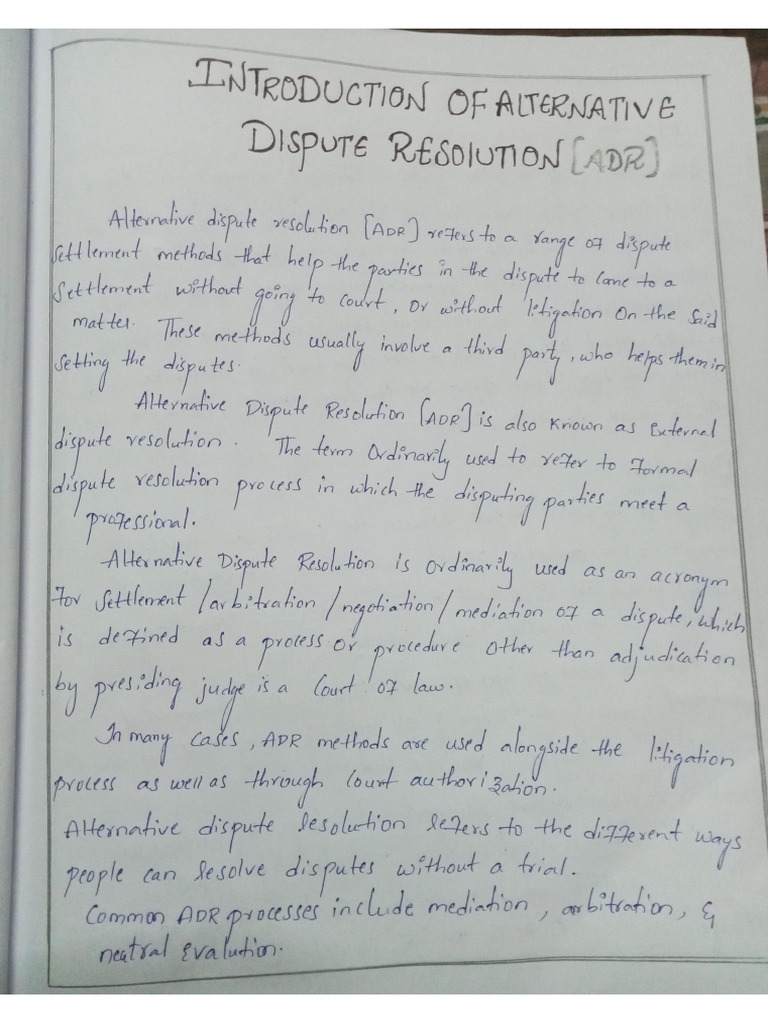 INTRODUCTION OF ALTERNATIVE
DISPUTE RESOLUTION [ADR]
Alternative dispute resolution [ADR] refers to a range of dispute
settlement methods that help the parties in the dispute to come to a
settlement without going to court, or without litigation on the said
matter. These methods usually involve a third party, who helps them in
setting the disputes.
Alternative Dispute Resolution [ADR] is also known as External
dispute resolution. The term Ordinarily used to refer to formal
dispute resolution process in which the disputing parties meet a
professional.
Alternative Dispute Resolution is ordinarily used as an acronym
for settlement/arbitration/negotiation/mediation of a dispute, which
is defined as a process or procedure other than adjudication
by presiding judge is a Court of law.
In many cases, ADR methods are used alongside the litigation
process as well as through court authorization.
Alternative dispute resolution refers to the different ways
people can resolve disputes without a trial.
Common ADR processes include mediation, arbitration, &
neatral Evalution.